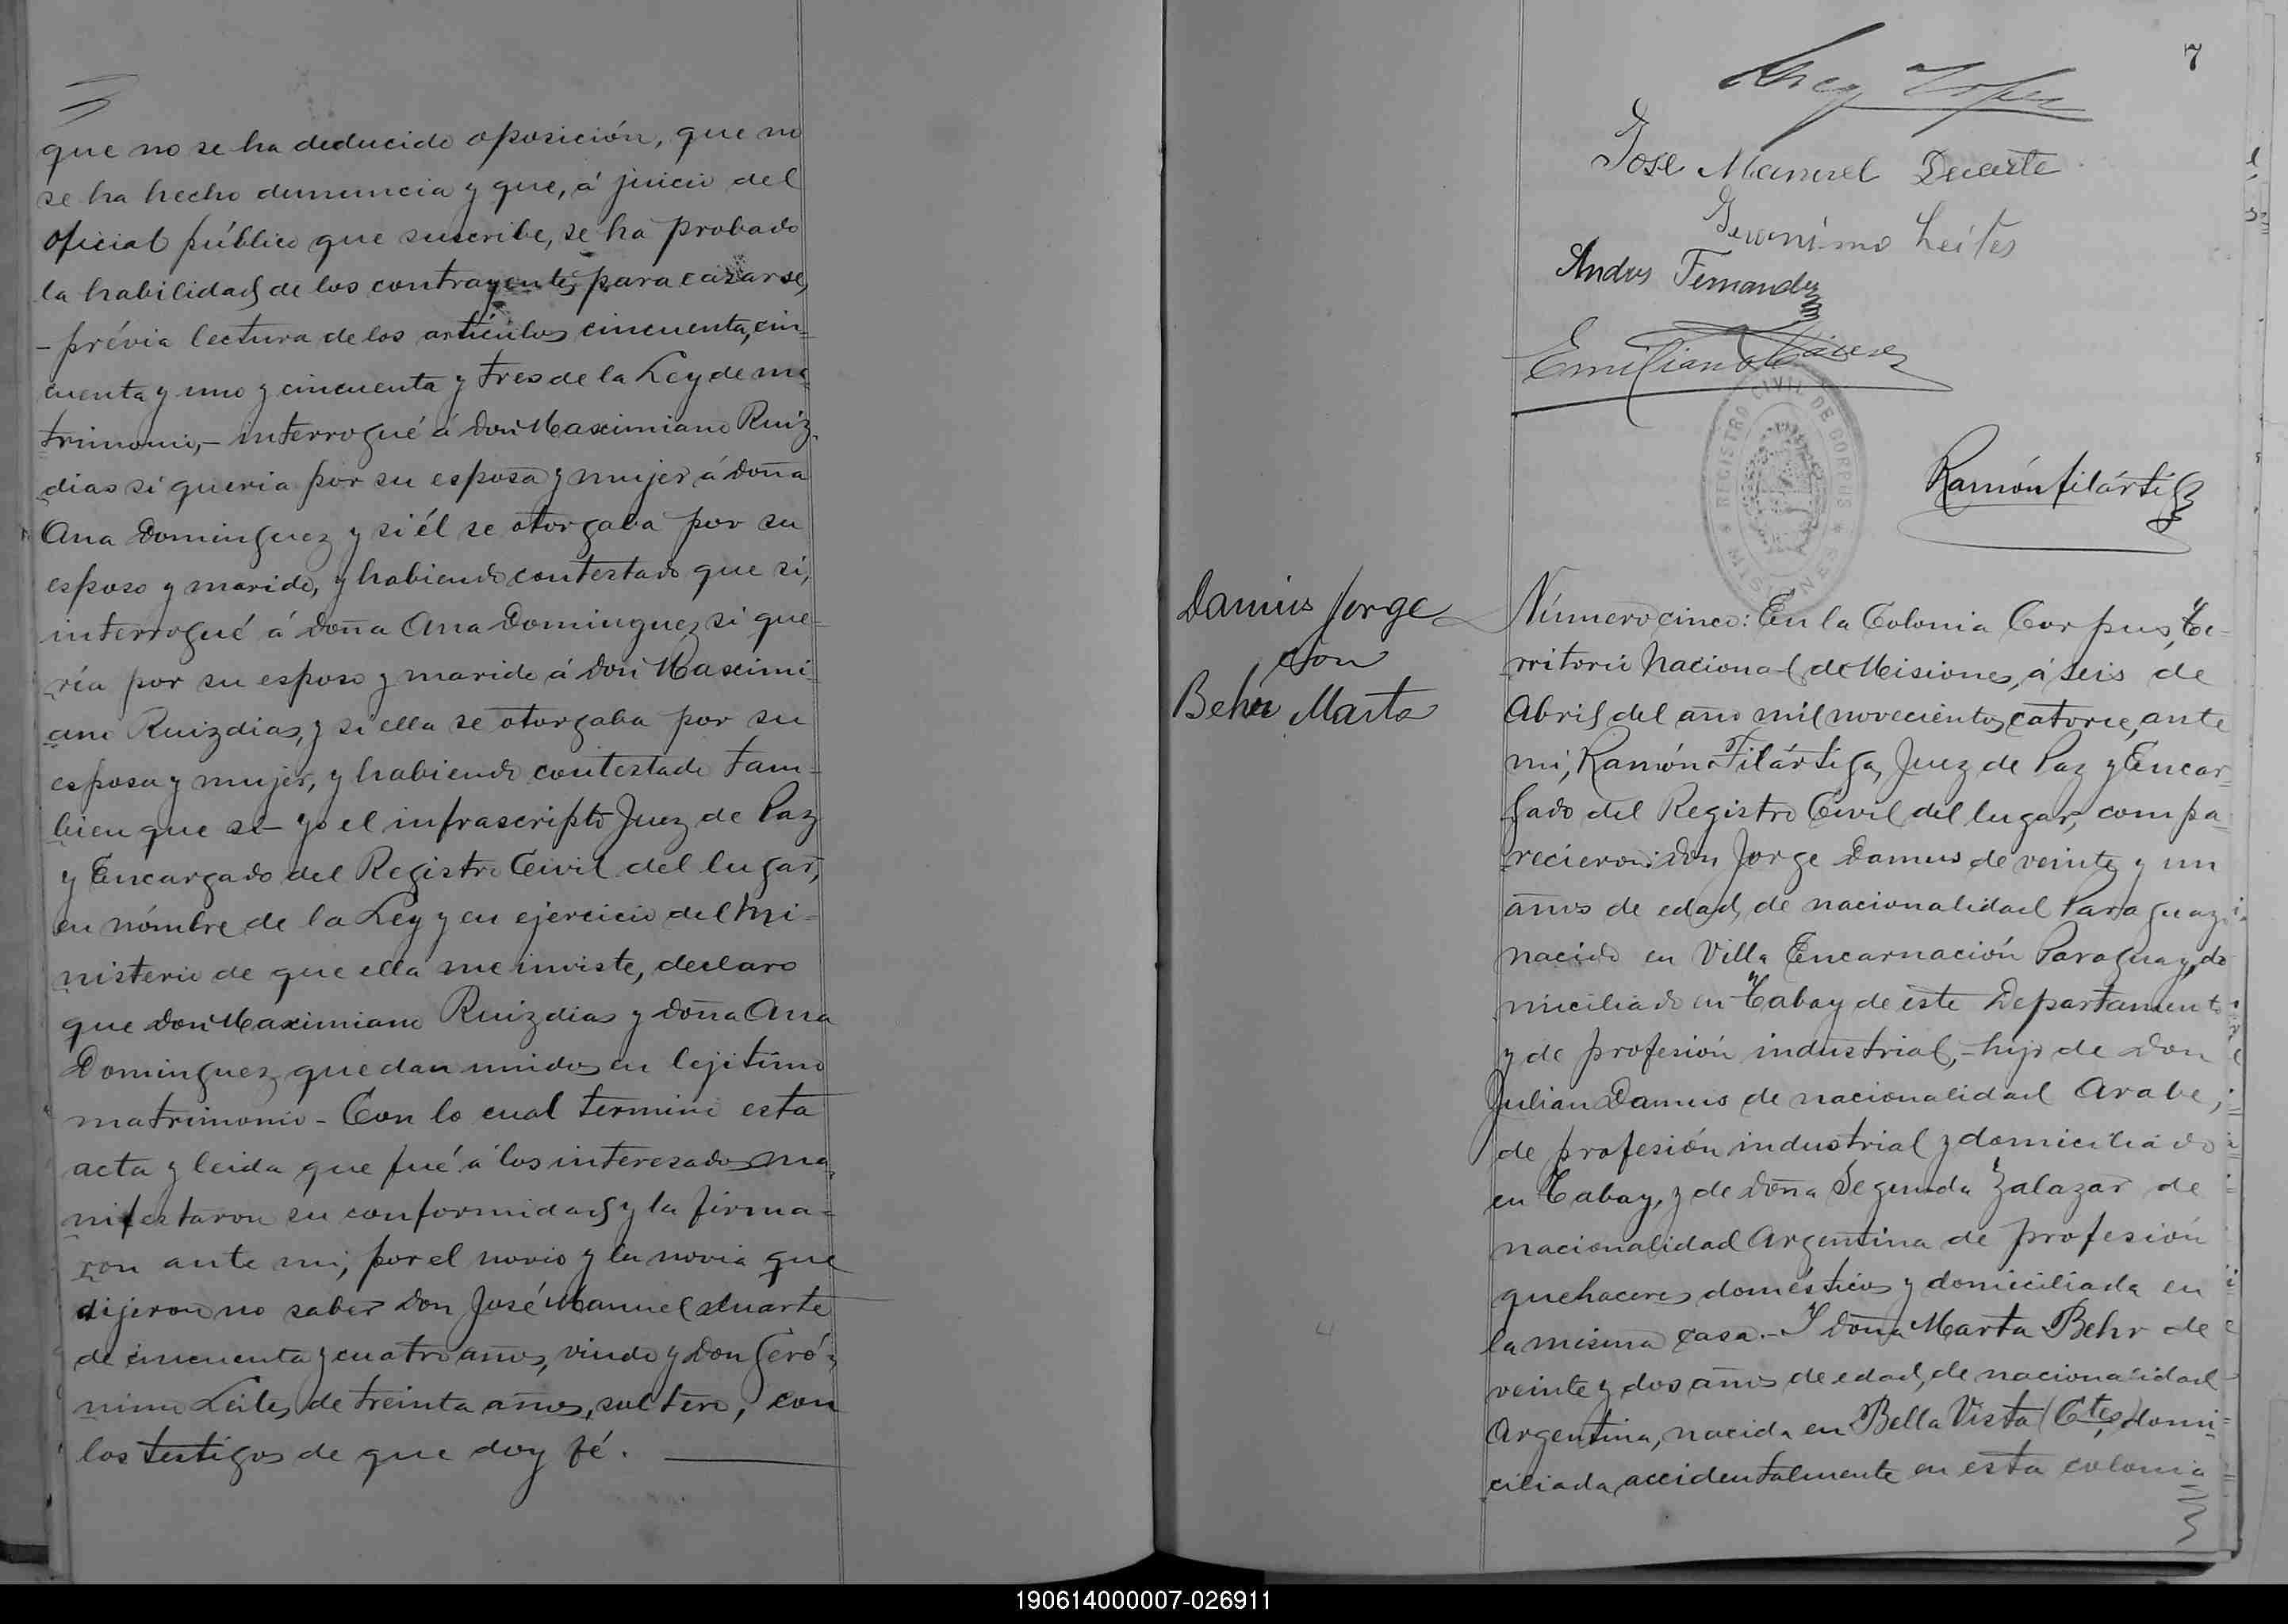 que no se ha deducido oposición, que no
se ha hecho denuncia y que, á juicio del
oficial público que suscribe, se ha probado
la habilidad de los contrayentes para cazarse,
- prévia lectura de los artículos cincuenta, cin-
cuenta y uno y cincuenta y tres de la Ley de ma-
trimonio, - interrogué á don Maximiano Ruiz
dias si queria por su esposa y mujer á doña
Ana Dominguez y si él se otorgaba por su
esposo y marido, y habiendo contestado que si,
interrogué á doña Ana Dominguez si que-
ría por su esposo y marido á don Maximi-
ano Ruizdias, y si ella se otorgaba por su
esposa y mujer, y habiendo contestado tam-
bien que si - yo el infrascripto Juez de Paz
y Encargado del Registro Civil del lugar,
en nómbre de la Ley y en ejercicio del Mi-
nisterio de que ella me inviste, declaro
que don Maximiano Ruizdias y doña Ana
Dominguez quedan unidos en lejitimo
matrimonio - Con lo cual termine esta
acta y leida que fué á los interesados ma-
nifestaron su conformidad y la firma-
ron ante mi, por el novio y la novia que
dijeron no saber don José Manuel duarte
de cincuenta y cuatro años, viudo y don Geró-
nimo Leites de treinta años, soltero, con
los testigos de que doy fé.
7
Jose Manuel Duarte
Geronimo Leites
Andres Fernandez
Emiliano
REGISTRO CIVIL DE CORPUS
MISIONES
Ramón Filártiga
Damus Jorge
con
Behr Marta
Número cinco: En la Colonia Corpus, Te-
rritorio Nacional de Misiones, á seis de
Abril del año mil novecientos catorce, ante
mi, Ramón Filártiga, Juez de Paz y Encar-
gado del Registro Civil del lugar, compa-
recieron: don Jorge Damus de veinte y un
años de edad, de nacionalidad Paraguaya
nacido en Villa Encarnación Paraguay, do
miciliado en Tabay de este Departamento
y de profesión industrial, - hijo de don
Julian Damus de nacionalidad Arabe,
de profesión industrial y domiciliado
en Tabay, y de doña Segunda Zalazar de
nacionalidad Argentina de profesión
quehaceres domésticos y domiciliada en
la misma casa. - Y doña Marta Behr de
veinte y dos años de edad, de nacionalidad
Argentina, nacida en Bella Vista (Ctes) domi-
ciliada accidentalmente en esta colonia
190614000007-026911